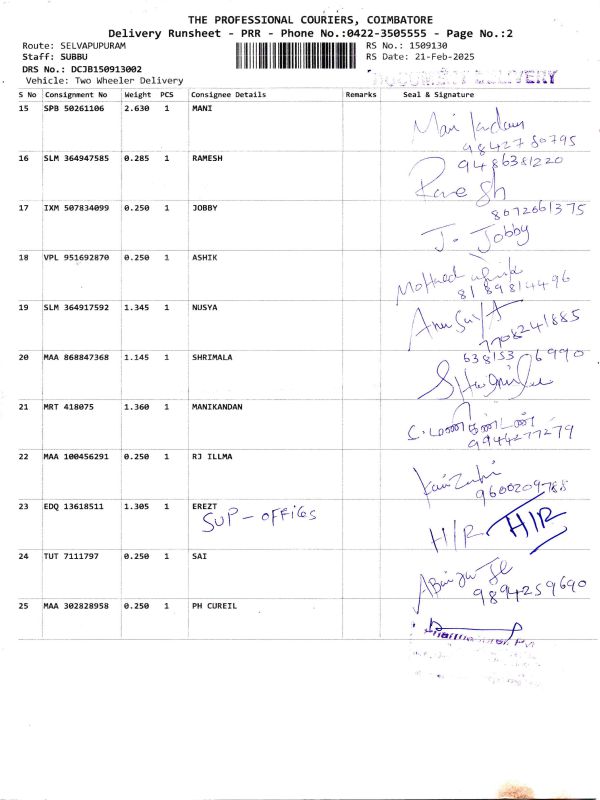 THE PROFESSIONAL COURIERS, COIMBATORE
Delivery Runsheet - PRR - Phone No.:0422-3505555 - Page No.:2
Route: SELVAPUPURAM RS No.: 1509130
Staff: SUBBU RS Date: 21-Feb-2025
DRS No.: DCJB150913002
Vehicle: Two Wheeler Delivery DOCUMENT DELIVERY
S No Consignment No Weight PCS Consignee Details Remarks Seal & Signature
15 SPB 50261106 2.630 1 MANI
9842780795
16 SLM 364947585 0.285 1 RAMESH 9486381220
Ramesh
17 IXM 507834099 0.250 1 JOBBY 8072661375
J. Jobby
18 VPL 951692870 0.250 1 ASHIK
8189814496
19 SLM 364917592 1.345 1 NUSYA
Anusuya
7708241885
20 MAA 868847368 1.145 1 SHRIMALA 638153 6990
21 MRT 418075 1.360 1 MANIKANDAN
C. மணிகண்டன்
9944277279
22 MAA 100456291 0.250 1 RJ ILLMA
9600209788
23 EDQ 13618511 1.305 1 EREZT
SUP - OFFiGS H/R H/R
24 TUT 7111797 0.250 1 SAI
9894259690
25 MAA 302828958 0.250 1 PH CUREIL